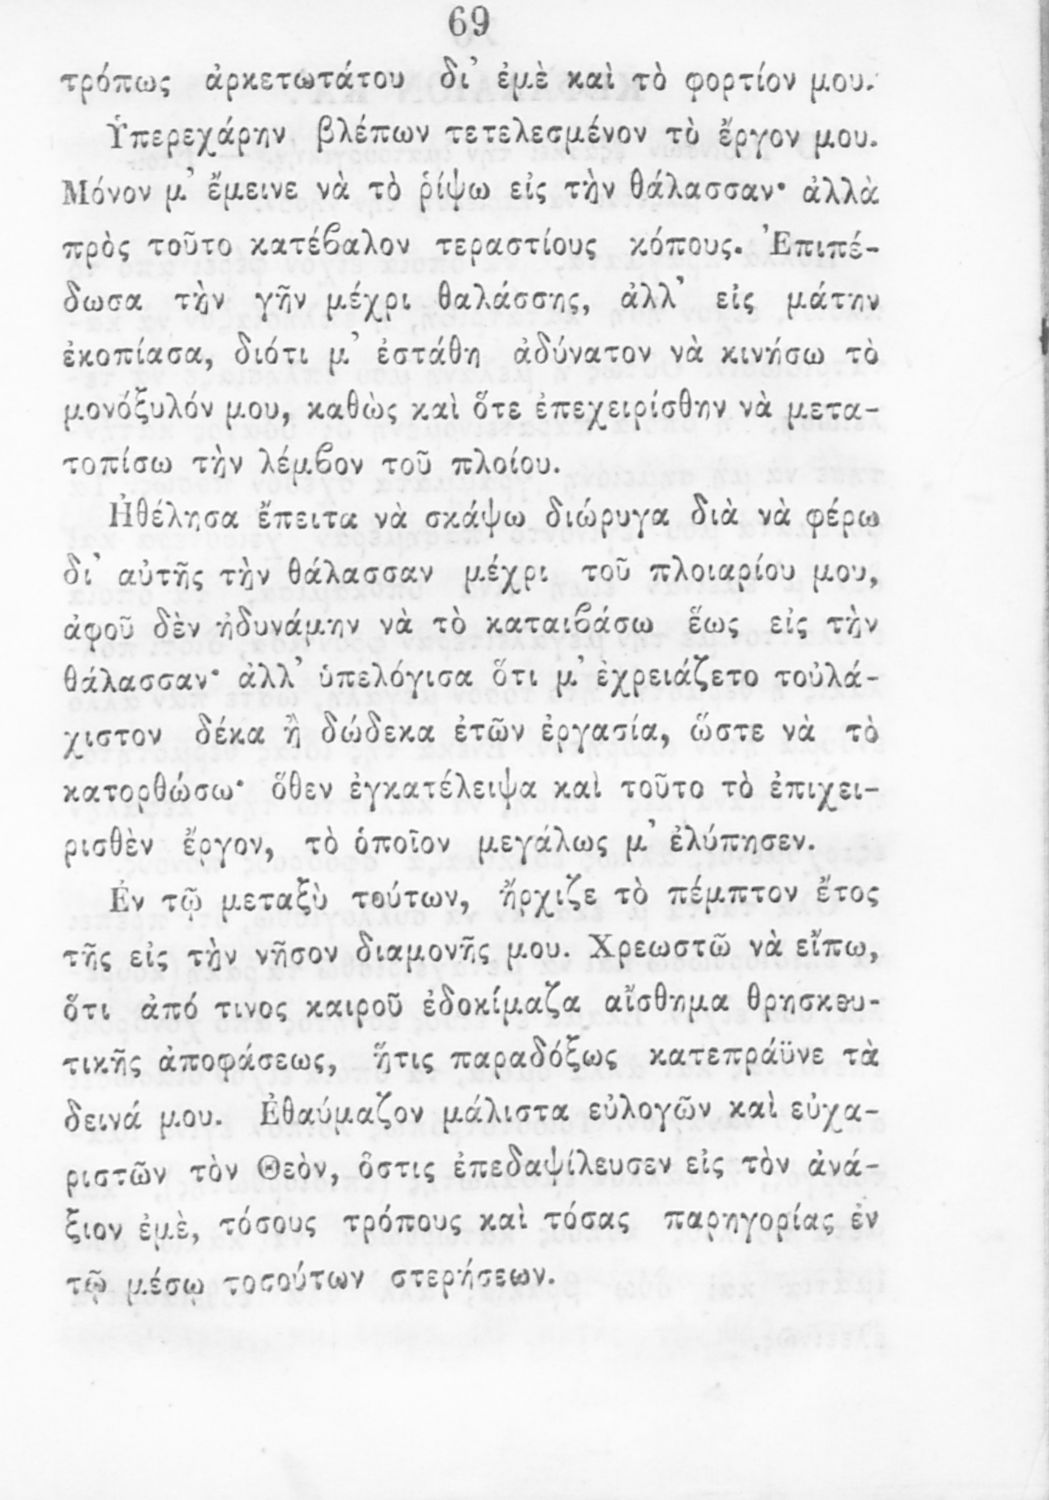 69
τρόπως ἀρκετωτάτου δι’ ἐμὲ καὶ τὸ φορτίον μου.
Ὑπερεχάρην βλέπων τετελεσμένον τὸ ἔργον μου.
Μόνον μ’ ἔμεινε νὰ τὸ ῥίψω εἰς τὴν θάλασσαν· ἀλλὰ
πρὸς τοῦτο κατέϐαλον τεραστίους κόπους. Ἐπιπέ-
δωσα τὴν γῆν μέχρι θαλάσσης, ἀλλ’ εἰς μάτην
ἐκοπίασα, διότι μ’ ἐστάθη ἀδύνατον νὰ κινήσω τὸ
μονόξυλόν μου, καθὼς καὶ ὅτε ἐπεχειρίσθην νὰ μετα-
τοπίσω τὴν λέμϐον τοῦ πλοίου.
Ἠθέλησα ἔπειτα νὰ σκάψω διώρυγα διὰ νὰ φέρω
δι’ αὐτῆς τὴν θάλασσαν μέχρι τοῦ πλοιαρίου μου,
ἀφοῦ δὲν ἠδυνάμην νὰ τὸ καταιϐάσω ἕως εἰς τὴν
θάλασσαν· ἀλλ’ ὑπελόγισα ὅτι μ’ ἐχρειάζετο τοὐλά-
χιστον δέκα ἢ δώδεκα ἐτῶν ἐργασία, ὥστε νὰ τὸ
κατορθώσω· ὅθεν ἐγκατέλειψα καὶ τοῦτο τὸ ἐπιχει-
ρισθὲν ἔργον, τὸ ὁποῖον μεγάλως μ’ ἐλύπησεν.
Ἐν τῷ μεταξὺ τούτων, ἤρχιζε τὸ πέμπτον ἔτος
τῆς εἰς τὴν νῆσον διαμονῆς μου. Χρεωστῶ νὰ εἴπω,
ὅτι ἀπό τινος καιροῦ ἐδοκίμαζα αἴσθημα θρησκευ-
τικῆς ἀποφάσεως, ἥτις παραδόξως κατεπράϋνε τὰ
δεινά μου. Ἐθαύμαζον μάλιστα εὐλογῶν καὶ εὐχα-
ριστῶν τὸν Θεὸν, ὅστις ἐπεδαψίλευσεν εἰς τὸν ἀνά-
ξιον ἐμὲ, τόσους τρόπους καὶ τόσας παρηγορίας ἐν
τῷ μέσῳ τοσούτων στερήσεων.